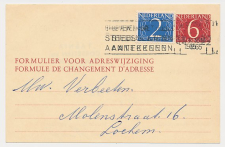 NEDERLAND NEDERLAND
2 6
STEEDS
AANTEKENEN
FORMULIER VOOR ADRESWIJZIGING
FORMULE DE CHANGEMENT D'ADRESSE
Mw. Verbeeten
Molenstraat 16
Lochem